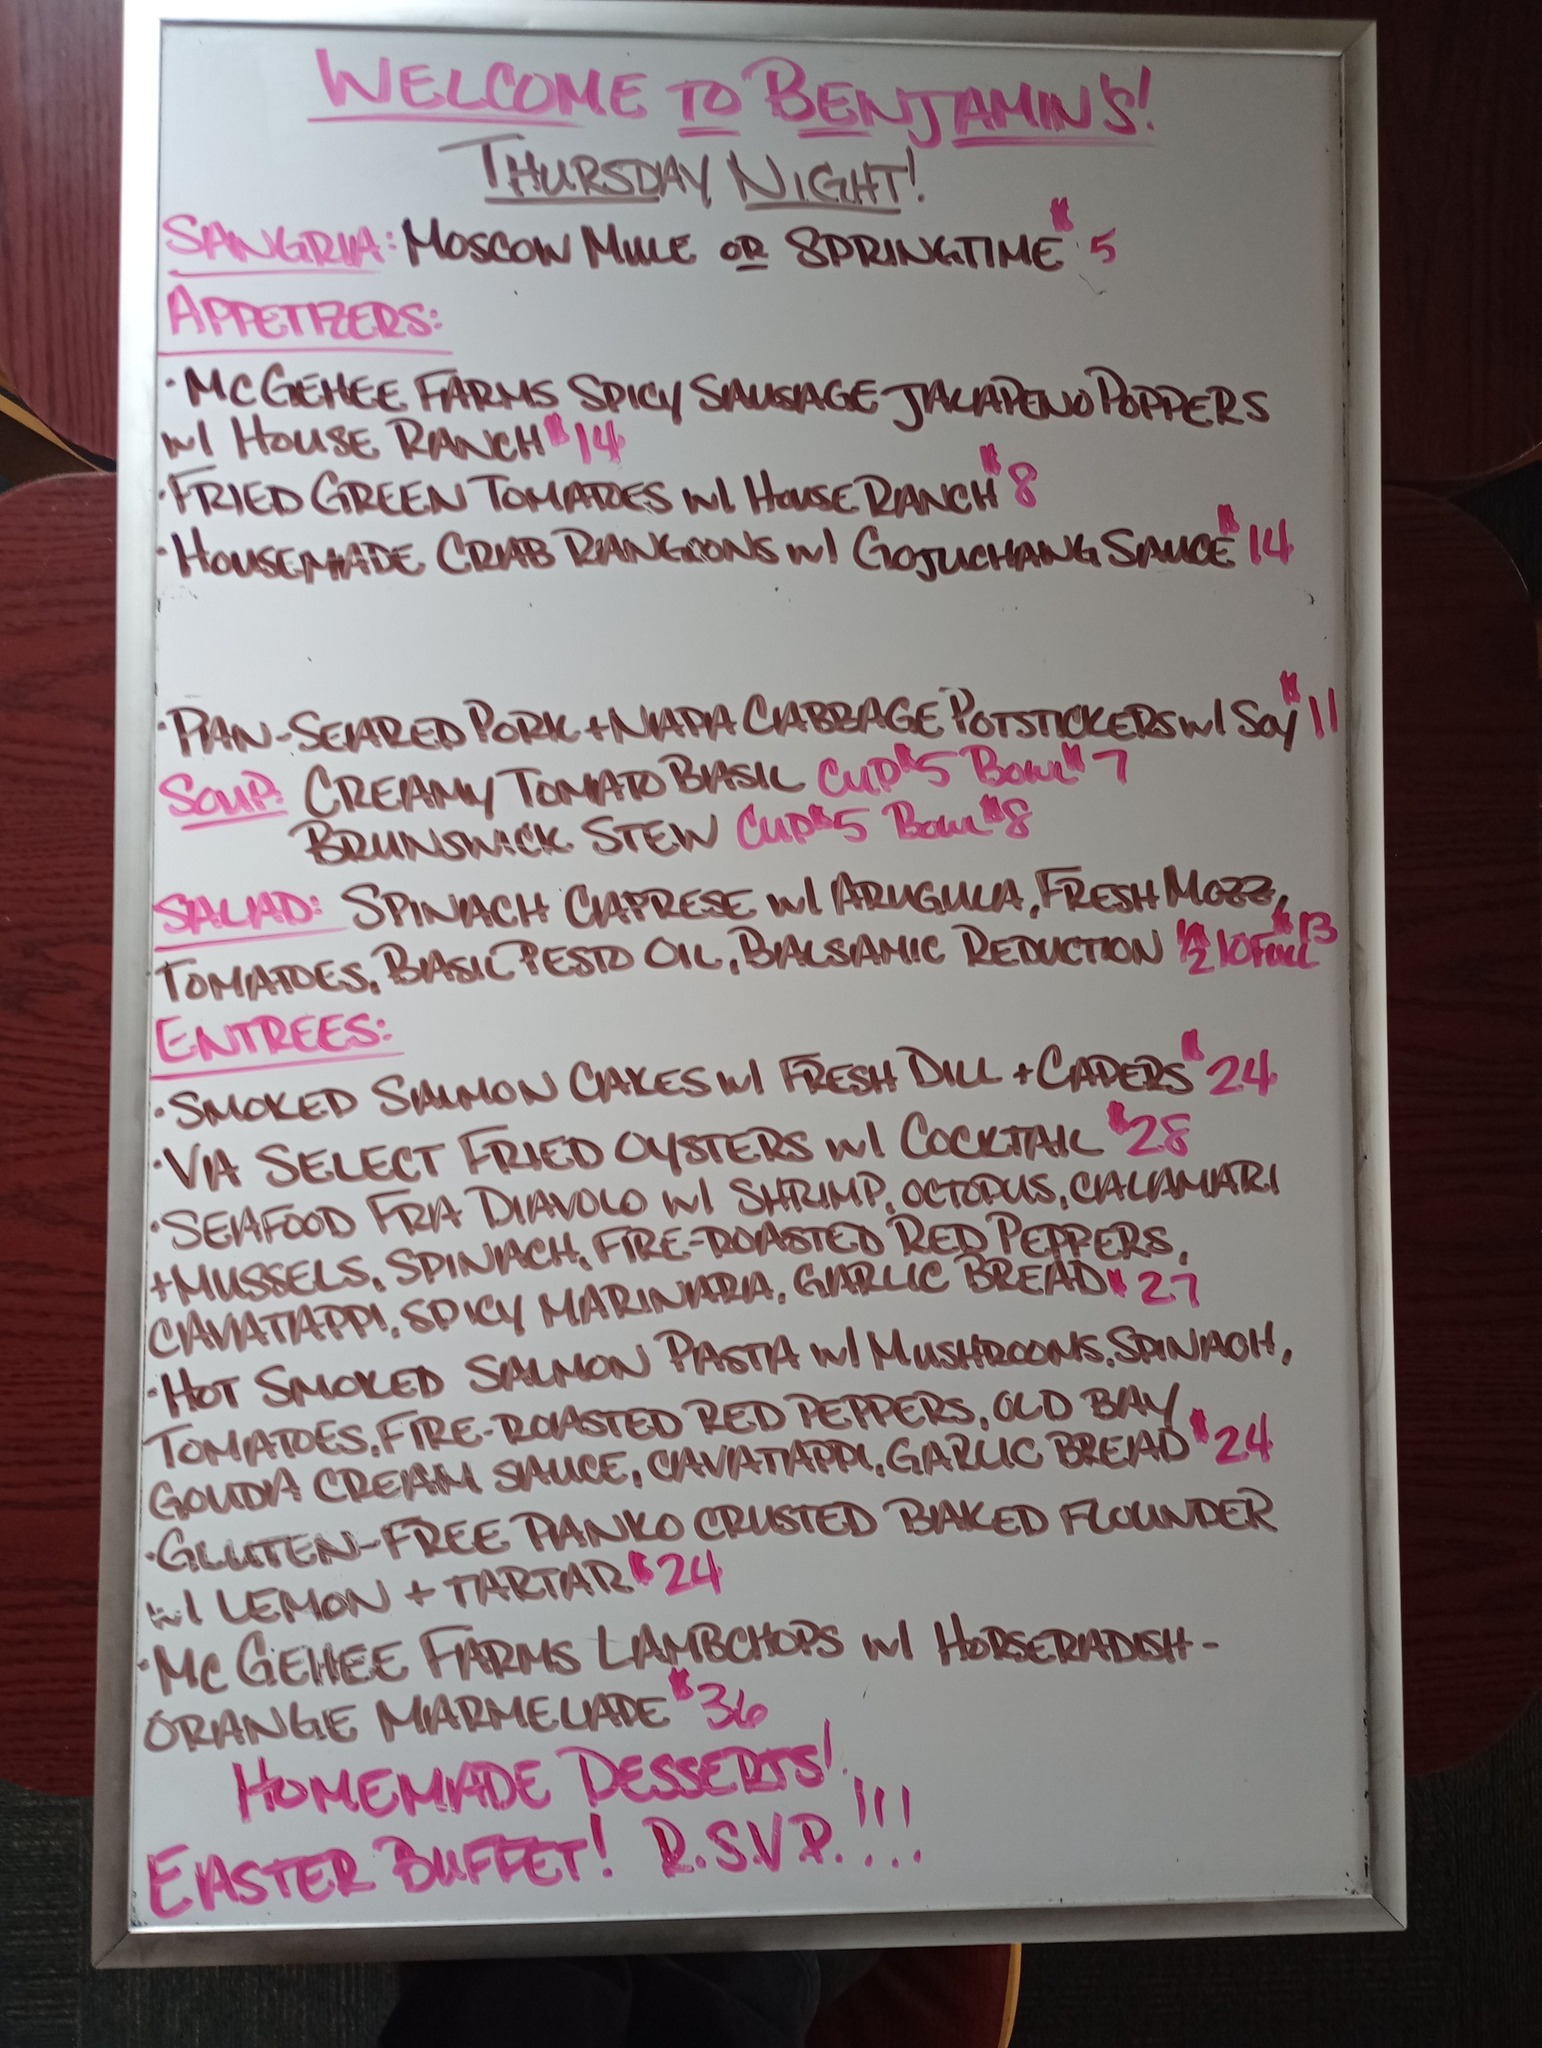 WELCOME TO BENJAMIN'S!
THURSDAY NIGHT!
SANGRIA: MOSCOW MULE OR SPRINGTIME $5
APPETIZERS:
· MCGEHEE FARMS SPICY SAUSAGE JALAPENO POPPERS
w/ HOUSE RANCH $14
· FRIED GREEN TOMATOES w/ HOUSE RANCH $8
· HOUSEMADE CRAB RANGOONS w/ GOJUCHANG SAUCE $14
· PAN-SEARED PORK + NAPA CABBAGE POTSTICKERS w/ SOY $11
SOUP: CREAMY TOMATO BASIL CUP $5 BOWL $7
BRUNSWICK STEW CUP $5 BOWL $8
SALAD: SPINACH CAPRESE w/ ARUGULA, FRESH MOZZ,
TOMATOES, BASIL PESTO OIL, BALSAMIC REDUCTION 1/2 $10 FULL $13
ENTREES:
· SMOKED SALMON CAKES w/ FRESH DILL + CAPERS $24
· VA SELECT FRIED OYSTERS w/ COCKTAIL $28
· SEAFOOD FRA DIAVOLO w/ SHRIMP, OCTOPUS, CALAMARI
+ MUSSELS, SPINACH, FIRE-ROASTED RED PEPPERS,
CAVATAPPI, SPICY MARINARA, GARLIC BREAD $27
· HOT SMOKED SALMON PASTA w/ MUSHROOMS, SPINACH,
TOMATOES, FIRE-ROASTED RED PEPPERS, OLD BAY
GOUDA CREAM SAUCE, CAVATAPPI, GARLIC BREAD $24
· GLUTEN-FREE PANKO CRUSTED BAKED FLOUNDER
w/ LEMON + TARTAR $24
· MCGEHEE FARMS LAMBCHOPS w/ HORSERADISH-
ORANGE MARMELADE $36
HOMEMADE DESSERTS!
EASTER BUFFET! R.S.V.P.!!!